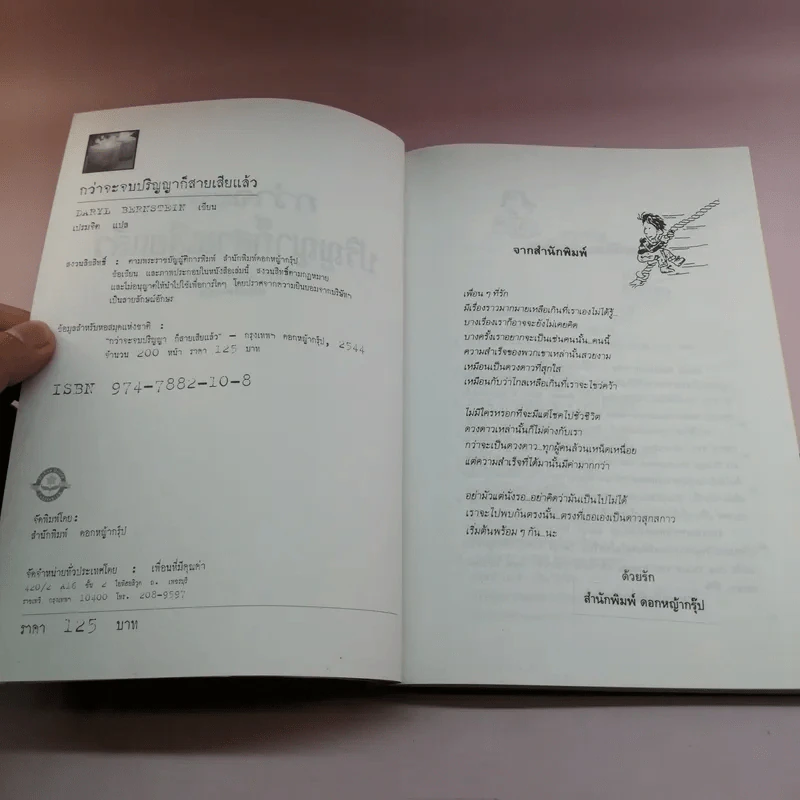 กว่าจะจบปริญญาก็สายเสียแล้ว
DARYL BERNSTEIN เขียน
เปรมจิต แปล
สงวนลิขสิทธิ์ : ตามพระราชบัญญัติการพิมพ์ สำนักพิมพ์ดอกหญ้ากรุ๊ป
ข้อเขียน และภาพประกอบในหนังสือเล่มนี้ สงวนสิทธิ์ตามกฎหมาย
และไม่อนุญาตให้นำไปใช้เพื่อการใดๆ โดยปราศจากความยินยอมจากบริษัทฯ
เป็นลายลักษณ์อักษร
ข้อมูลสำหรับหอสมุดแห่งชาติ :
"กว่าจะจบปริญญา ก็สายเสียแล้ว" — กรุงเทพฯ ดอกหญ้ากรุ๊ป, 2544
จำนวน 200 หน้า ราคา 125 บาท
ISBN 974-7882-10-8
จัดพิมพ์โดย :
สำนักพิมพ์ ดอกหญ้ากรุ๊ป
จัดจำหน่ายทั่วประเทศโดย : เพื่อนที่มีคุณค่า
ราชเทวี กรุงเทพฯ 10400 โทร. 208-9597
ราคา 125 บาท
จากสำนักพิมพ์
เพื่อน ๆ ที่รัก
มีเรื่องราวมากมายเหลือเกินที่เราเองไม่ได้รู้..
บางเรื่องเราก็อาจจะยังไม่เคยคิด
บางครั้งเราอยากจะเป็นเช่นคนนั้น..คนนี้
ความสำเร็จของพวกเขาเหล่านั้นสวยงาม
เหมือนเป็นดวงดาวที่สุกใส
เหมือนกับว่าไกลเหลือเกินที่เราจะไขว่คว้า
ไม่มีใครหรอกที่จะมีแต่โชคไปชั่วชีวิต
ดวงดาวเหล่านั้นก็ไม่ต่างกับเรา
กว่าจะเป็นดวงดาว...ทุกผู้คนล้วนเหน็ดเหนื่อย
แต่ความสำเร็จที่ได้มานั้นมีค่ามากกว่า
อย่ามัวแต่นั่งรอ...อย่าคิดว่ามันเป็นไปไม่ได้
เราจะไปพบกันตรงนั้น...ตรงที่เธอเองเป็นดาวสุกสกาว
เริ่มต้นพร้อม ๆ กัน...นะ
ด้วยรัก
สำนักพิมพ์ ดอกหญ้ากรุ๊ป